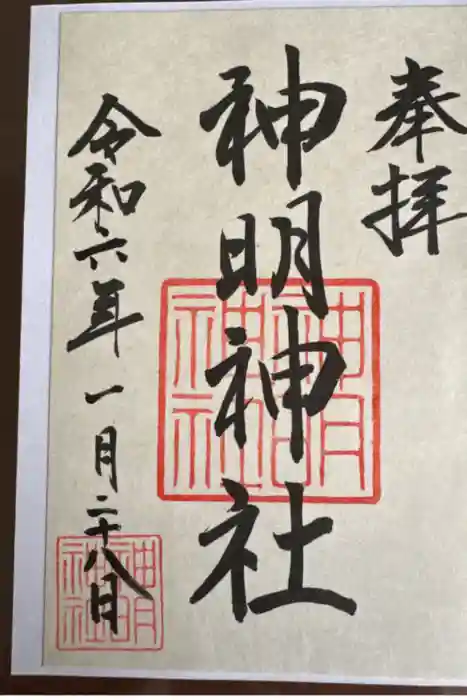 奉拝
神明神社
神明
神社
令和六年一月二十八日
神明
神社